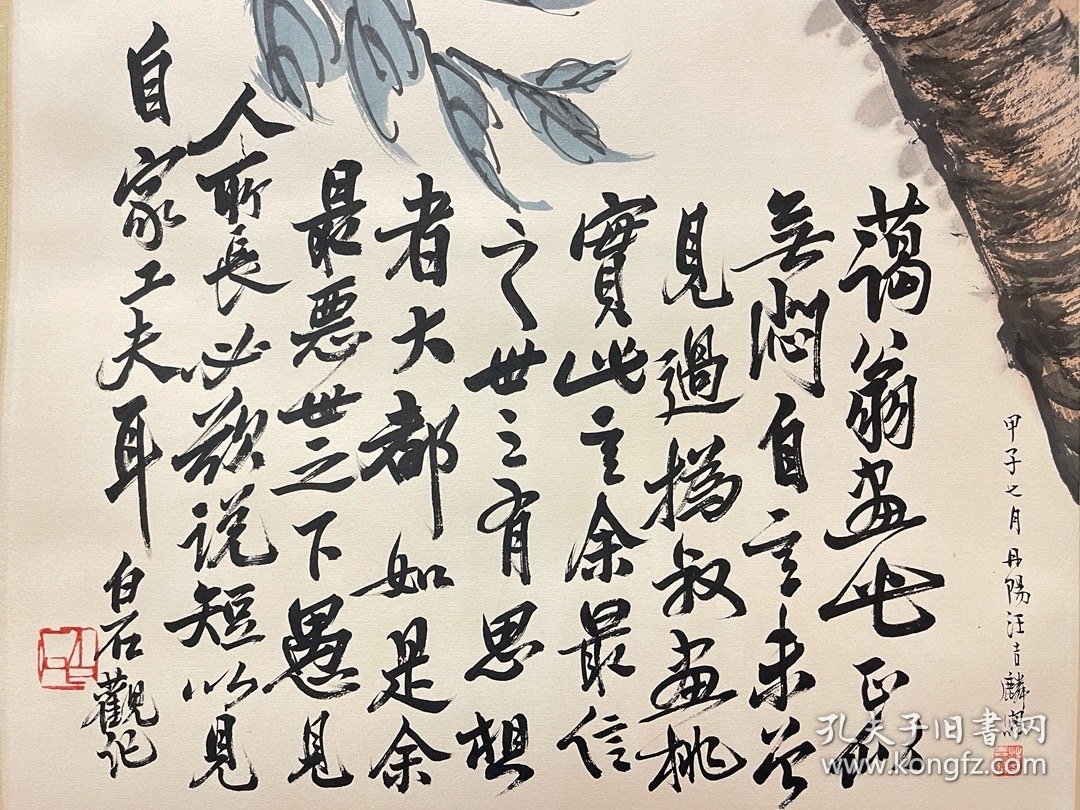 蔼翁画此正似
无闷自言未曾
見過撝叔画桃
實此言余最信
之世之有思想
者大都如是余
最惡世之下愚見
人所長必欲说短以見
自家工夫耳
白石觀記
甲子七月丹陽汪吉麟寫
孔夫子旧書网
www.kongfz.com